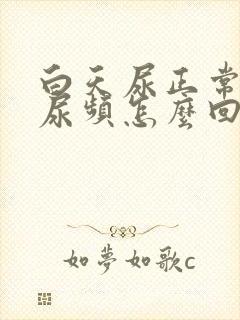 白天尿正常
尿頻怎麼回
如夢如歌c